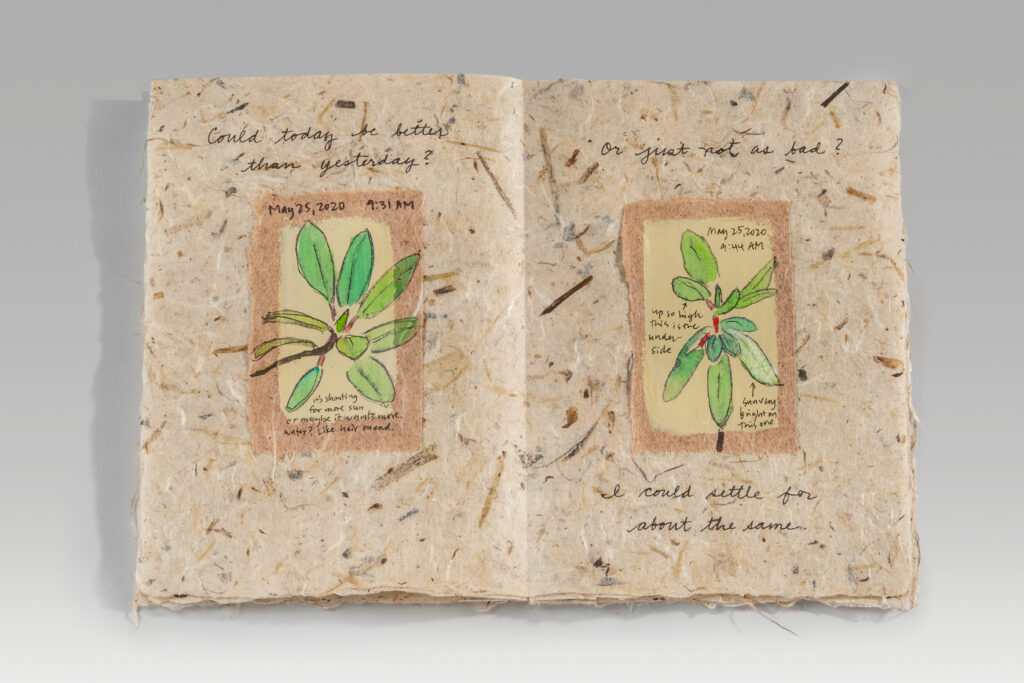 Could today be better
than yesterday?
May 25, 2020 9:31 AM
it's shouting
for more sun
or maybe it wants more
water? Like hair on end.
Or just not as bad?
May 25, 2020
9:44 AM
up so high
this is the
under-
side
sun very
bright on
this one
I could settle for
about the same.